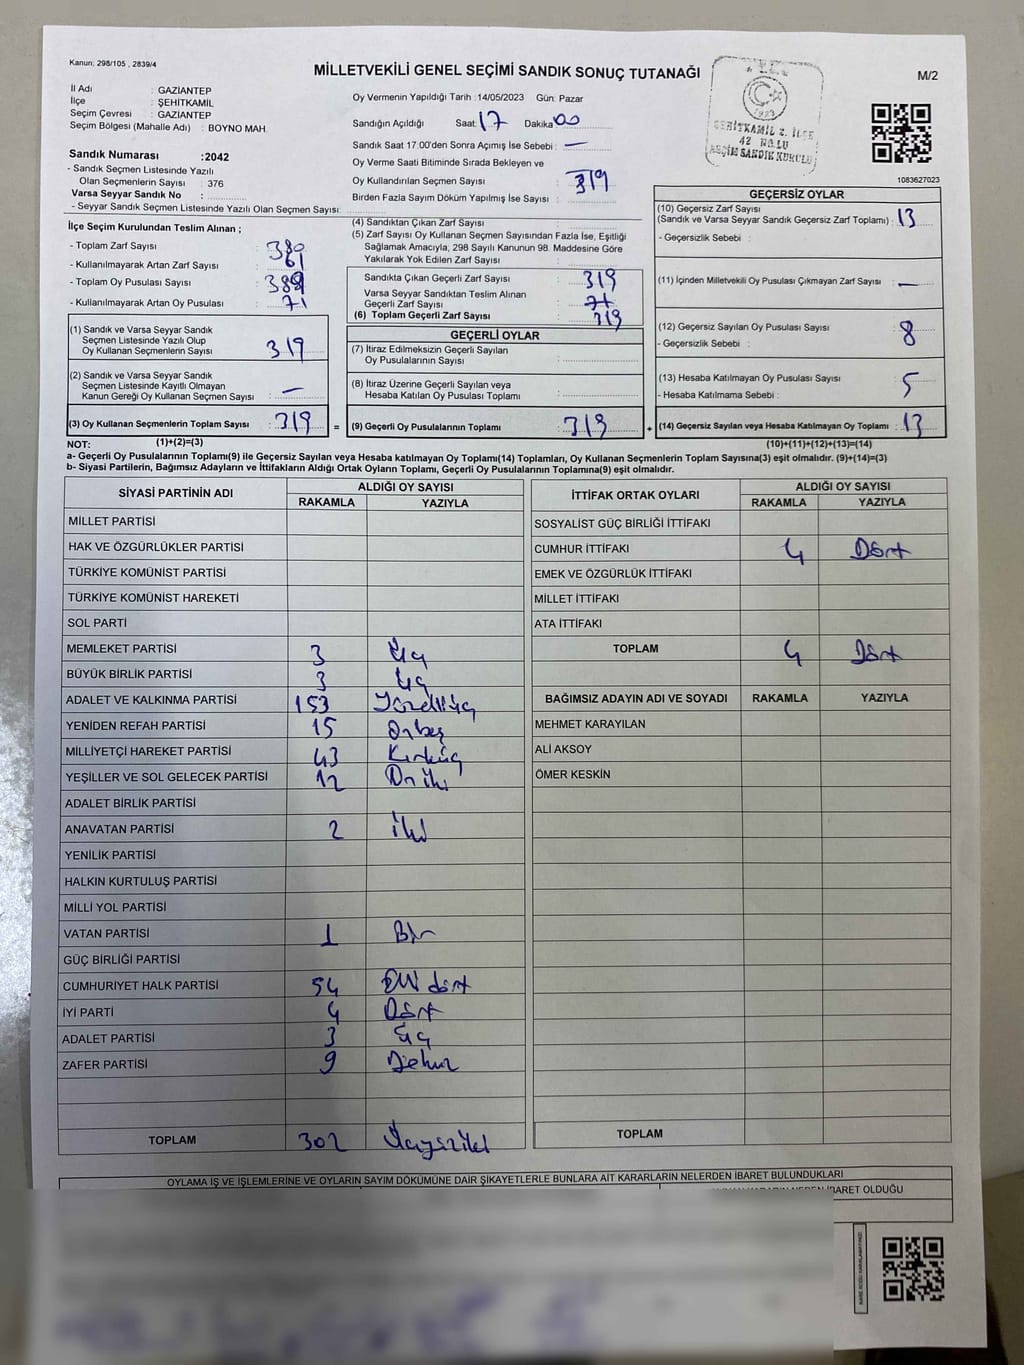 Kanun; 298/105 , 2839/4
MİLLETVEKİLİ GENEL SEÇİMİ SANDIK SONUÇ TUTANAĞI
M/2
İl Adı : GAZİANTEP
İlçe : ŞEHİTKAMİL
Seçim Çevresi : GAZİANTEP
Seçim Bölgesi (Mahalle Adı) : BOYNO MAH.
Sandık Numarası :2042
- Sandık Seçmen Listesinde Yazılı
Olan Seçmenlerin Sayısı : 376
Varsa Seyyar Sandık No :
- Seyyar Sandık Seçmen Listesinde Yazılı Olan Seçmen Sayısı:
Oy Vermenin Yapıldığı Tarih :14/05/2023 Gün: Pazar
Sandığın Açıldığı Saat: 17 Dakika: 00
Sandık Saat 17:00'den Sonra Açımış İse Sebebi : —
Oy Verme Saati Bitiminde Sırada Bekleyen ve
Oy Kullandırılan Seçmen Sayısı : 319
Birden Fazla Sayım Döküm Yapılmış İse Sayısı :
ŞEHİTKAMİL 2. İLÇE
42 NOLU
SEÇİM SANDIK KURULU
1083627023
İlçe Seçim Kurulundan Teslim Alınan ;
- Toplam Zarf Sayısı : 380
- Kullanılmayarak Artan Zarf Sayısı : 61
- Toplam Oy Pusulası Sayısı :
- Kullanılmayarak Artan Oy Pusulası : 71
(1) Sandık ve Varsa Seyyar Sandık
Seçmen Listesinde Yazılı Olup
Oy Kullanan Seçmenlerin Sayısı : 319
(2) Sandık ve Varsa Seyyar Sandık
Seçmen Listesinde Kayıtlı Olmayan
Kanun Gereği Oy Kullanan Seçmen Sayısı : —
(3) Oy Kullanan Seçmenlerin Toplam Sayısı : 319
(4) Sandıktan Çıkan Zarf Sayısı :
(5) Zarf Sayısı Oy Kullanan Seçmen Sayısından Fazla İse, Eşitliği
Sağlamak Amacıyla, 298 Sayılı Kanunun 98. Maddesine Göre
Yakılarak Yok Edilen Zarf Sayısı :
Sandıkta Çıkan Geçerli Zarf Sayısı : 319
Varsa Seyyar Sandıktan Teslim Alınan
Geçerli Zarf Sayısı : 71
(6) Toplam Geçerli Zarf Sayısı : 319
GEÇERLİ OYLAR
(7) İtiraz Edilmeksizin Geçerli Sayılan
Oy Pusulalarının Sayısı :
(8) İtiraz Üzerine Geçerli Sayılan veya
Hesaba Katılan Oy Pusulası Toplamı :
= (9) Geçerli Oy Pusulalarının Toplamı : 319
GEÇERSİZ OYLAR
(10) Geçersiz Zarf Sayısı
(Sandık ve Varsa Seyyar Sandık Geçersiz Zarf Toplamı) : 13
- Geçersizlik Sebebi :
(11) İçinden Milletvekili Oy Pusulası Çıkmayan Zarf Sayısı : —
(12) Geçersiz Sayılan Oy Pusulası Sayısı : 8
- Geçersizlik Sebebi :
(13) Hesaba Katılmayan Oy Pusulası Sayısı : 5
- Hesaba Katılmama Sebebi :
+ (14) Geçersiz Sayılan veya Hesaba Katılmayan Oy Toplamı : 13
NOT: (1)+(2)=(3) (10)+(11)+(12)+(13)=(14)
a- Geçerli Oy Pusulalarının Toplamı(9) ile Geçersiz Sayılan veya Hesaba katılmayan Oy Toplamı(14) Toplamları, Oy Kullanan Seçmenlerin Toplam Sayısına(3) eşit olmalıdır. (9)+(14)=(3)
b- Siyasi Partilerin, Bağımsız Adayların ve İttifakların Aldığı Ortak Oyların Toplamı, Geçerli Oy Pusulalarının Toplamına(9) eşit olmalıdır.
SİYASİ PARTİNİN ADI ALDIĞI OY SAYISI
RAKAMLA YAZIYLA
MİLLET PARTİSİ
HAK VE ÖZGÜRLÜKLER PARTİSİ
TÜRKİYE KOMÜNİST PARTİSİ
TÜRKİYE KOMÜNİST HAREKETİ
SOL PARTİ
MEMLEKET PARTİSİ 3 Üç
BÜYÜK BİRLİK PARTİSİ 3 Üç
ADALET VE KALKINMA PARTİSİ 153
YENİDEN REFAH PARTİSİ 15 Onbeş
MİLLİYETÇİ HAREKET PARTİSİ 43 Kırküç
YEŞİLLER VE SOL GELECEK PARTİSİ 12 On iki
ADALET BİRLİK PARTİSİ
ANAVATAN PARTİSİ 2 İki
YENİLİK PARTİSİ
HALKIN KURTULUŞ PARTİSİ
MİLLİ YOL PARTİSİ
VATAN PARTİSİ 1 Bir
GÜÇ BİRLİĞİ PARTİSİ
CUMHURİYET HALK PARTİSİ 54 Elli dört
İYİ PARTİ 4 Dört
ADALET PARTİSİ 3 Üç
ZAFER PARTİSİ 9 Dokuz
TOPLAM 302 Üçyüziki
İTTİFAK ORTAK OYLARI ALDIĞI OY SAYISI
RAKAMLA YAZIYLA
SOSYALİST GÜÇ BİRLİĞİ İTTİFAKI
CUMHUR İTTİFAKI 4 Dört
EMEK VE ÖZGÜRLÜK İTTİFAKI
MİLLET İTTİFAKI
ATA İTTİFAKI
TOPLAM 4 Dört
BAĞIMSIZ ADAYIN ADI VE SOYADI RAKAMLA YAZIYLA
MEHMET KARAYILAN
ALİ AKSOY
ÖMER KESKİN
TOPLAM
OYLAMA İŞ VE İŞLEMLERİNE VE OYLARIN SAYIM DÖKÜMÜNE DAİR ŞİKAYETLERLE BUNLARA AİT KARARLARIN NELERDEN İBARET BULUNDUKLARI
OLDUĞU